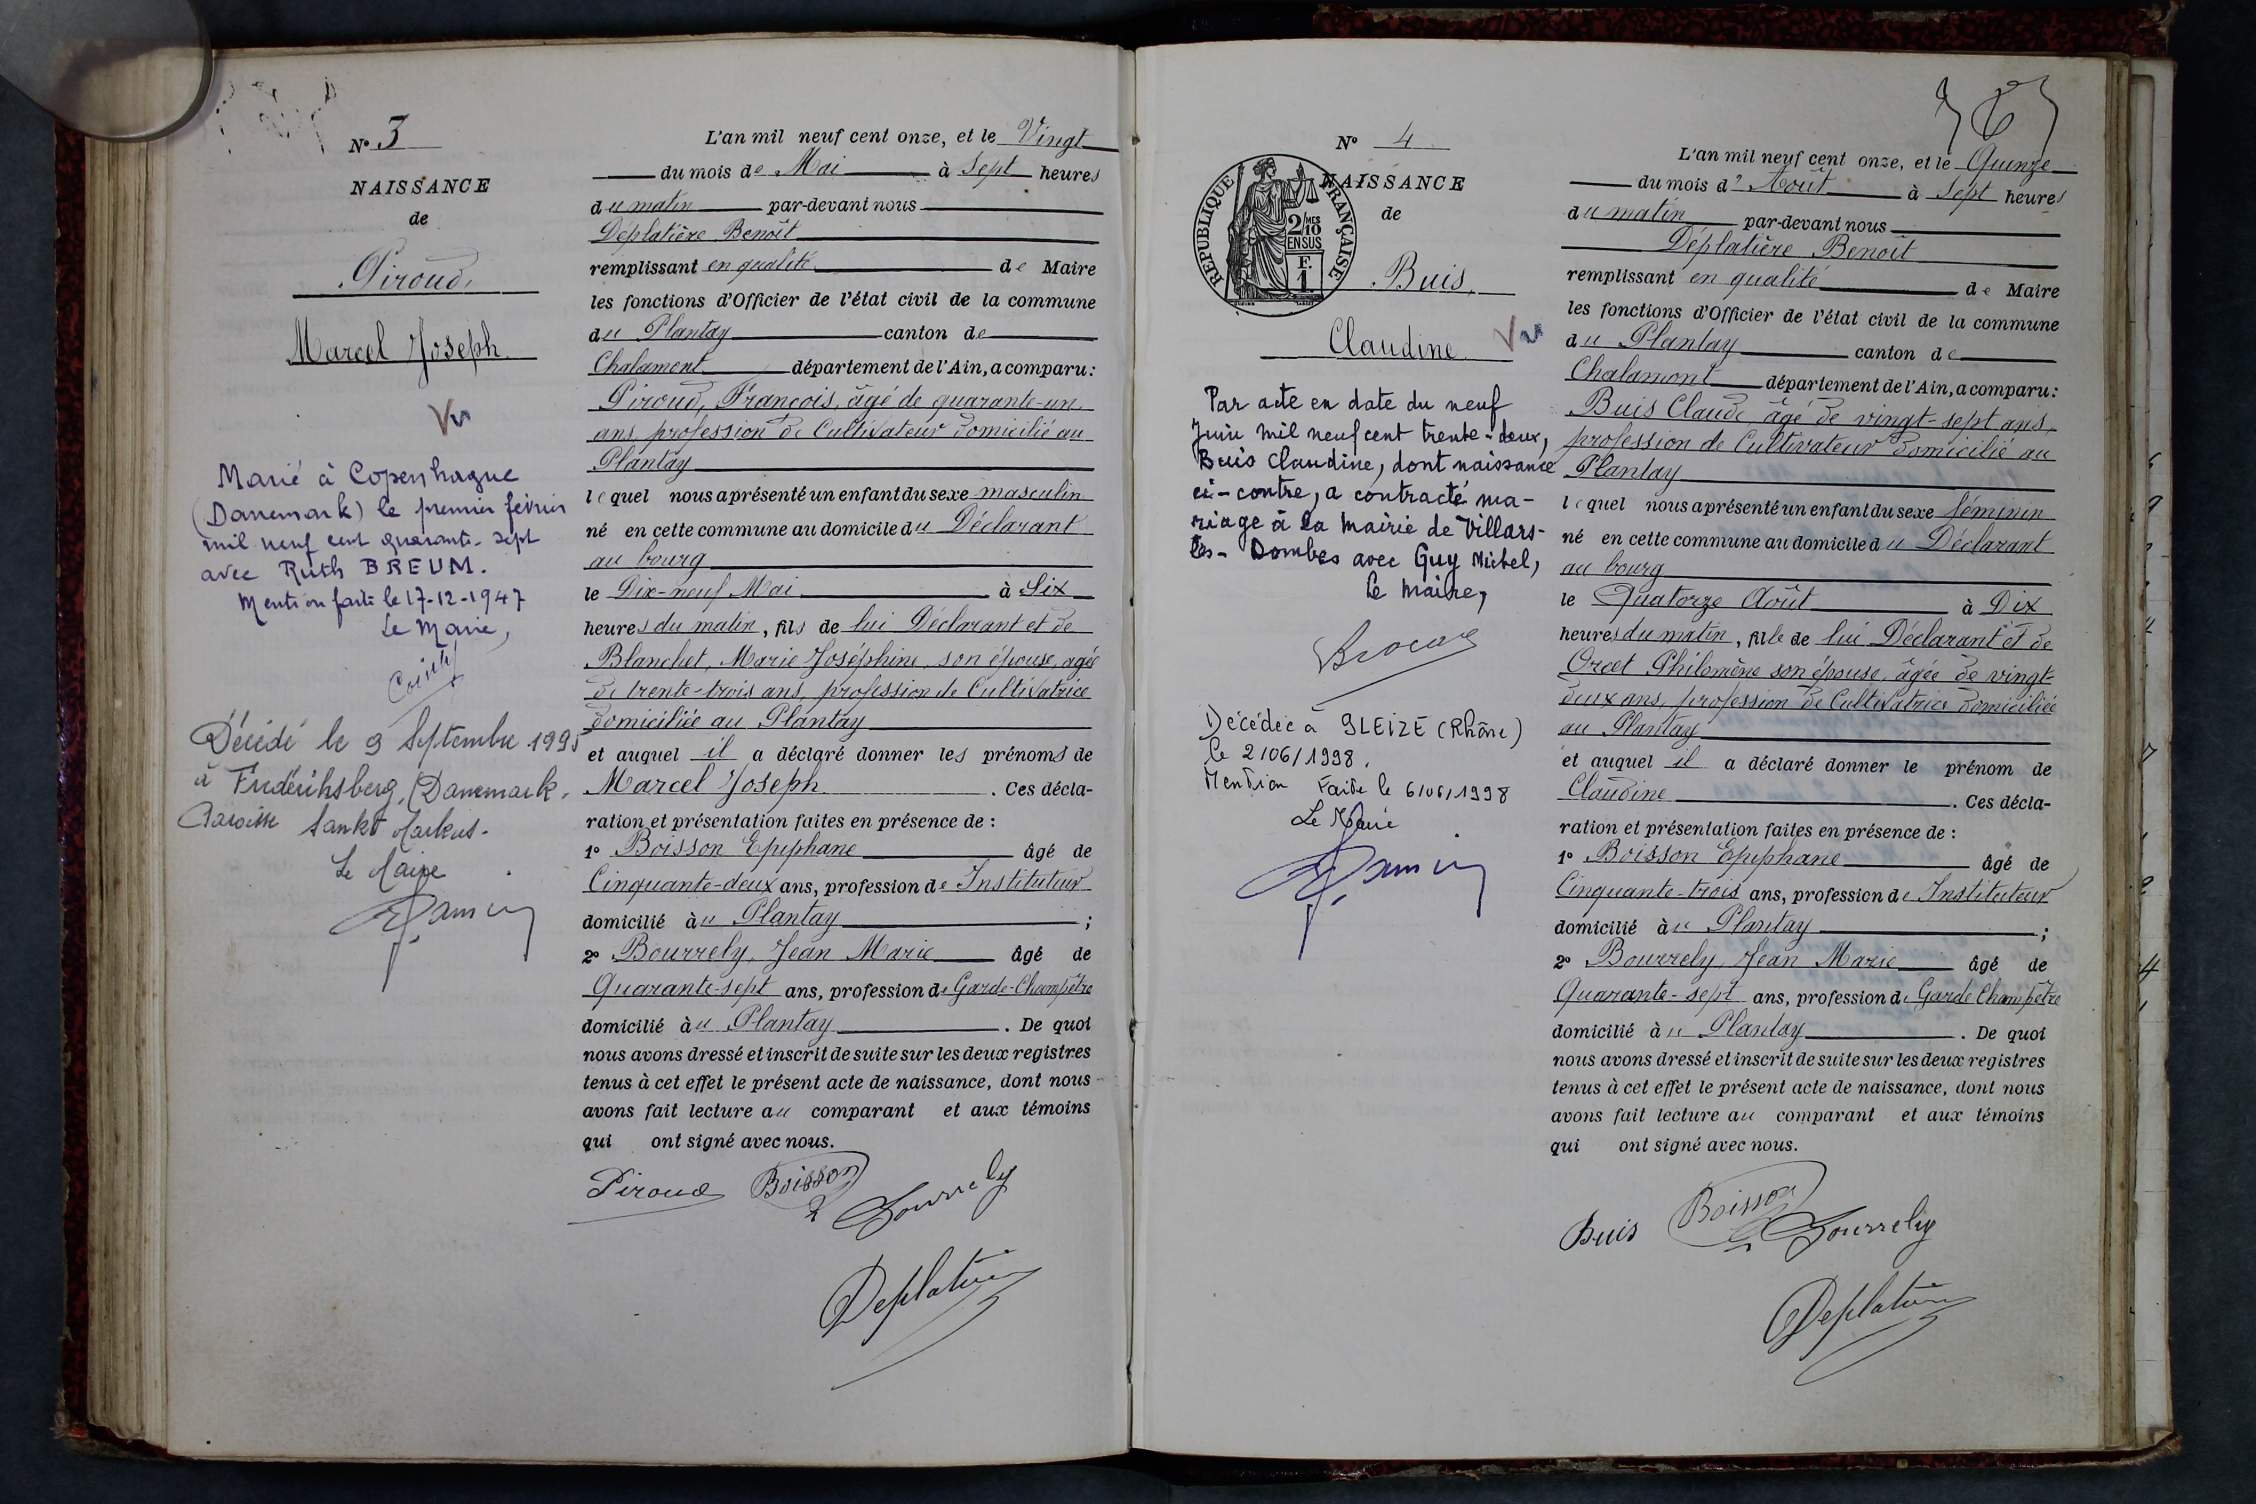 N° 3
NAISSANCE
de
Piroud,
Marcel Joseph
Vu
Marié à Copenhague
(Danemark) le premier février
mil neuf cent quarante-sept
avec Ruth BREUM.
Mention faite le 17-12-1947
Le Maire,
Décédé le 9 Septembre 1995
à Frederiksberg, (Danemark.
Paroisse Sankt Markus.
Le Maire
L'an mil neuf cent onze, et le Vingt
du mois de Mai à Sept heures
du matin par-devant nous
Déplatière Benoît
remplissant en qualité de Maire
les fonctions d'Officier de l'état civil de la commune
du Plantay canton de
Chalamont département de l'Ain, a comparu:
Piroud, François, âgé de quarante-un
ans, profession de Cultivateur domicilié au
Plantay
lequel nous a présenté un enfant du sexe masculin
né en cette commune au domicile du Déclarant
au bourg
le Dix-neuf Mai à Six
heures du matin, fils de lui Déclarant et de
Blanchet, Marie Joséphine, son épouse, agée
de trente-trois ans, profession de Cultivatrice
domiciliée au Plantay
et auquel il a déclaré donner les prénoms de
Marcel Joseph. Ces décla-
ration et présentation faites en présence de :
1° Boisson Epiphane âgé de
Cinquante-deux ans, profession de Instituteur
domicilié au Plantay ;
2° Bourrely, Jean Marie âgé de
Quarante-sept ans, profession de Garde-Champêtre
domicilié au Plantay. De quoi
nous avons dressé et inscrit de suite sur les deux registres
tenus à cet effet le présent acte de naissance, dont nous
avons fait lecture au comparant et aux témoins
qui ont signé avec nous.
Piroud Boisson Bourrely
Deplatière
N° 4
NAISSANCE
de
RÉPUBLIQUE FRANÇAISE
2/10 MES
EN SUS
F.
1.
Buis,
Claudine
Vu
Par acte en date du neuf
Juin mil neuf cent trente-deux,
Buis Claudine, dont naissance
ci-contre, a contracté ma-
riage à la Mairie de Villars-
les-Dombes avec Guy Michel,
Le Maire,
Décédée à GLEIZE (Rhône)
le 2/06/1998.
Mention Faite le 6/06/1998
Le Maire
L'an mil neuf cent onze, et le Quinze
du mois d' Août à Sept heures
du matin par-devant nous
Déplatière Benoît
remplissant en qualité de Maire
les fonctions d'Officier de l'état civil de la commune
du Plantay canton de
Chalamont département de l'Ain, a comparu:
Buis Claude âgé de vingt-sept ans,
profession de Cultivateur domicilié au
Plantay
lequel nous a présenté un enfant du sexe féminin
né en cette commune au domicile du Déclarant
au bourg
le Quatorze Août à Dix
heures du matin, fille de lui Déclarant et de
Orcet Philomène son épouse, âgée de vingt-
deux ans, profession de Cultivatrice domiciliée
au Plantay
et auquel il a déclaré donner le prénom de
Claudine. Ces décla-
ration et présentation faites en présence de :
1° Boisson Epiphane âgé de
Cinquante-trois ans, profession de Instituteur
domicilié au Plantay ;
2° Bourrely, Jean Marie âgé de
Quarante-sept ans, profession de Garde Champêtre
domicilié au Plantay. De quoi
nous avons dressé et inscrit de suite sur les deux registres
tenus à cet effet le présent acte de naissance, dont nous
avons fait lecture au comparant et aux témoins
qui ont signé avec nous.
Buis Boisson Bourrely
Deplatière